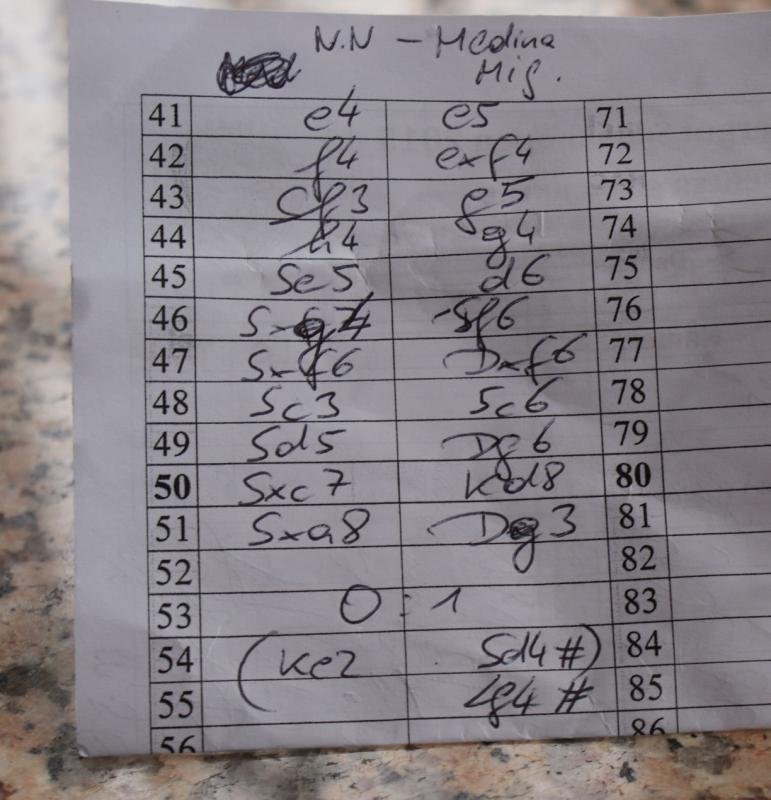 N.N - Medina
Mig.
41 e4 e5 71
42 f4 exf4 72
43 Sf3 g5 73
44 h4 g4 74
45 Se5 d6 75
46 Sxg4 Sf6 76
47 Sxf6 Dxf6 77
48 Sc3 Sc6 78
49 Sd5 Dg6 79
50 Sxc7 Kd8 80
51 Sxa8 Dg3 81
52 82
53 0:1 83
54 (Ke2 Sd4#) 84
55 Lg4# 85
56 86